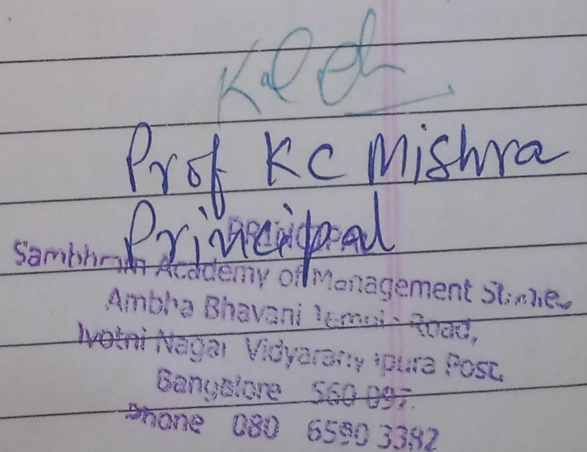 Prof KC Mishra
Principal
PRINCIPAL
Sambhram Academy of Management Studies
Ambha Bhavani Temple Road,
Jyothi Nagar Vidyaranyapura Post,
Bangalore 560 097.
Phone 080 6590 3382